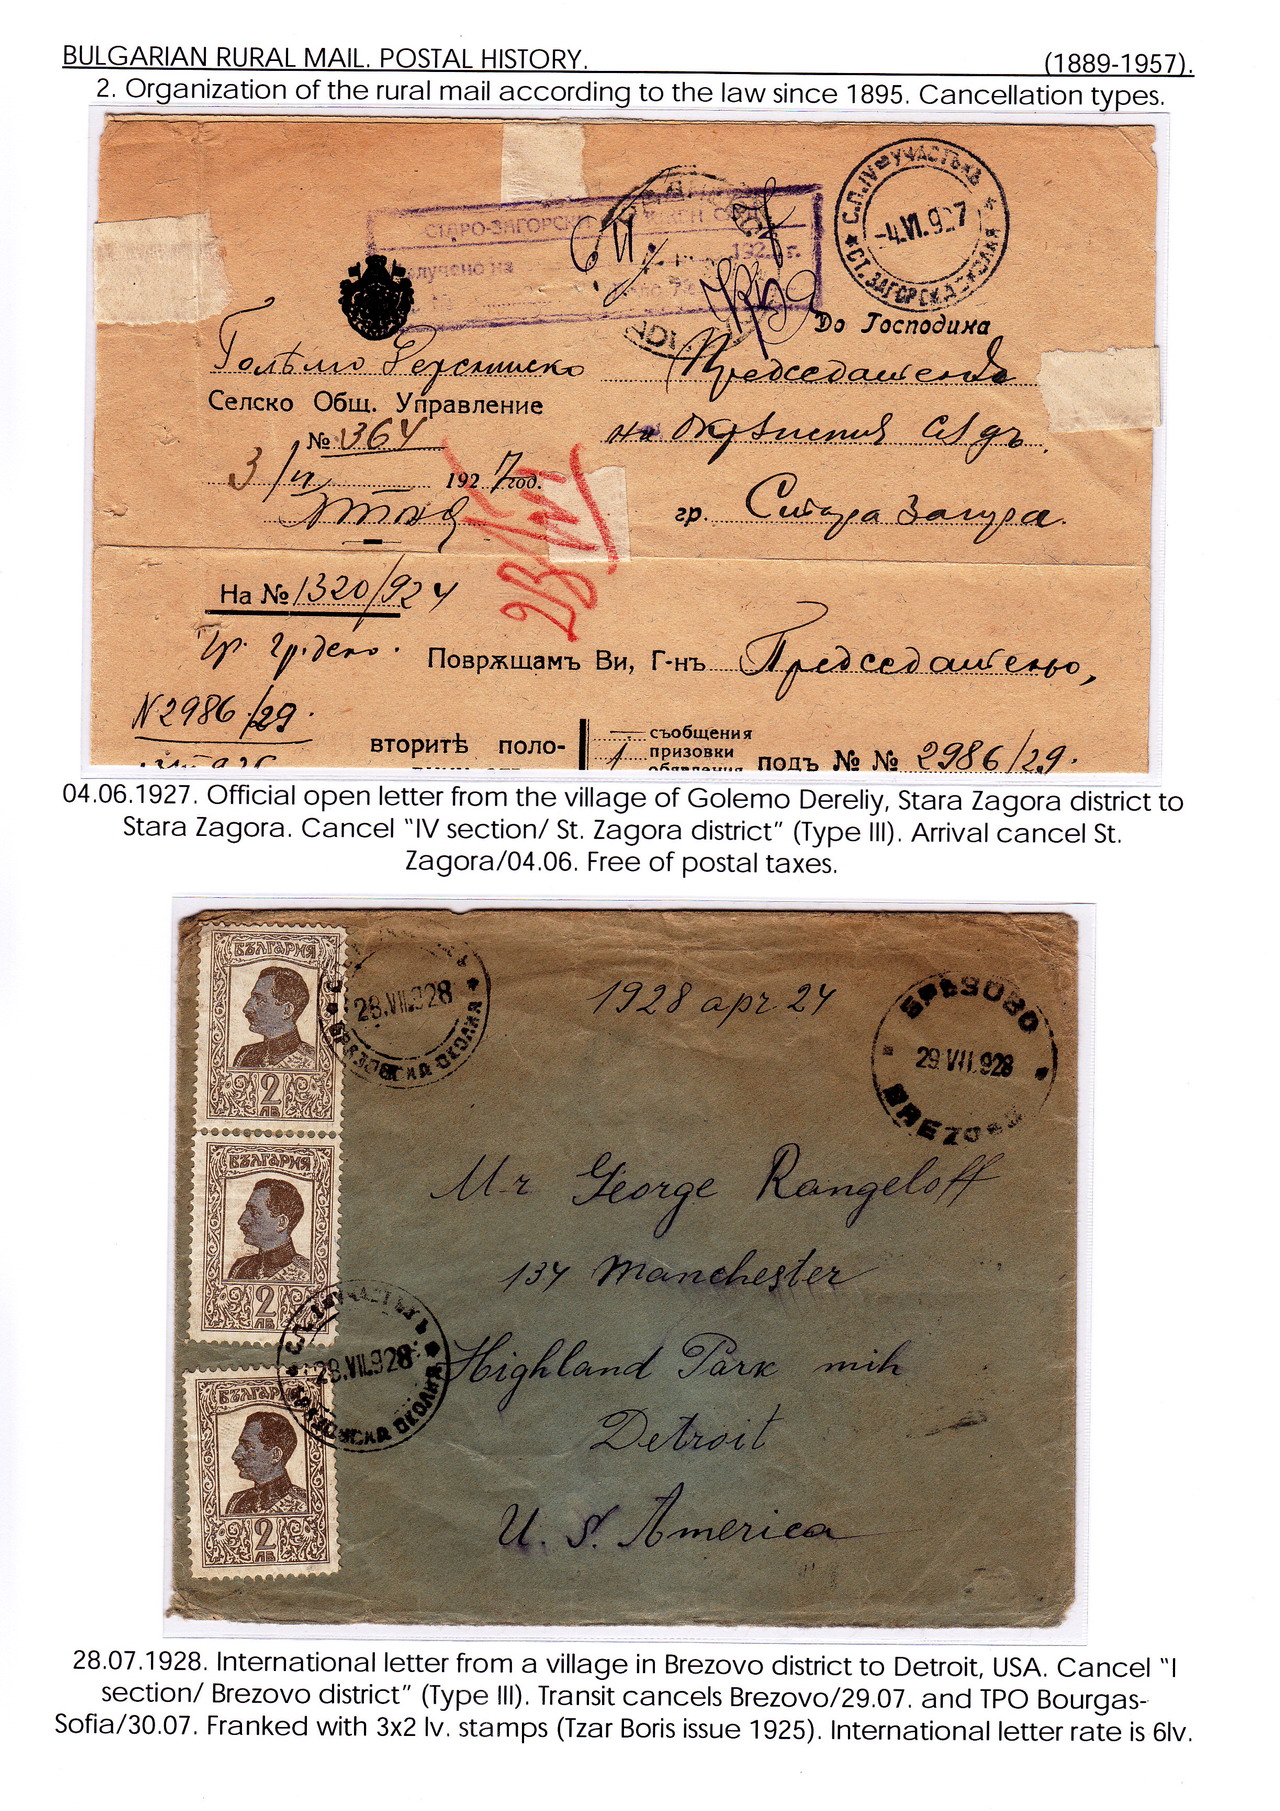 BULGARIAN RURAL MAIL. POSTAL HISTORY. (1889-1957).
2. Organization of the rural mail according to the law since 1895. Cancellation types.
С.П. IV УЧАСТЪКЪ
-4.VI.927
СТ. ЗАГОРСКА ОКОЛИЯ
СТАРО-ЗАГОРСКИ
192 г.
До Господина
Председателя
Селско Общ. Управление
№ 1364
на Окръжния Съдъ
3/VI 1927 год.
гр. Стара Загора.
На № 1320/924
Повръщамъ Ви, Г-нъ Председателю,
N 2986/29.
вторитѣ поло-
съобщения
1 призовки
подъ № № 2986/29.
04.06.1927. Official open letter from the village of Golemo Dereliy, Stara Zagora district to
Stara Zagora. Cancel “IV section/ St. Zagora district” (Type III). Arrival cancel St.
Zagora/04.06. Free of postal taxes.
БЪЛГАРИЯ
2
ЛВ
28.VII.928
БРЯЗОВСКА ОКОЛИЯ
1928 apr 24
БРѢЗОВО
29.VII.928
BREZOVO
БЪЛГАРИЯ
2
ЛВ
Mr George Rangeloff
134 Manchester
УЧАСТЪКЪ
28.VII.928
БРЯЗОВСКА ОКОЛИЯ
Highland Park mih
БЪЛГАРИЯ
2
ЛВ
Detroit
U. S. America
28.07.1928. International letter from a village in Brezovo district to Detroit, USA. Cancel “I
section/ Brezovo district” (Type III). Transit cancels Brezovo/29.07. and TPO Bourgas-
Sofia/30.07. Franked with 3x2 lv. stamps (Tzar Boris issue 1925). International letter rate is 6lv.